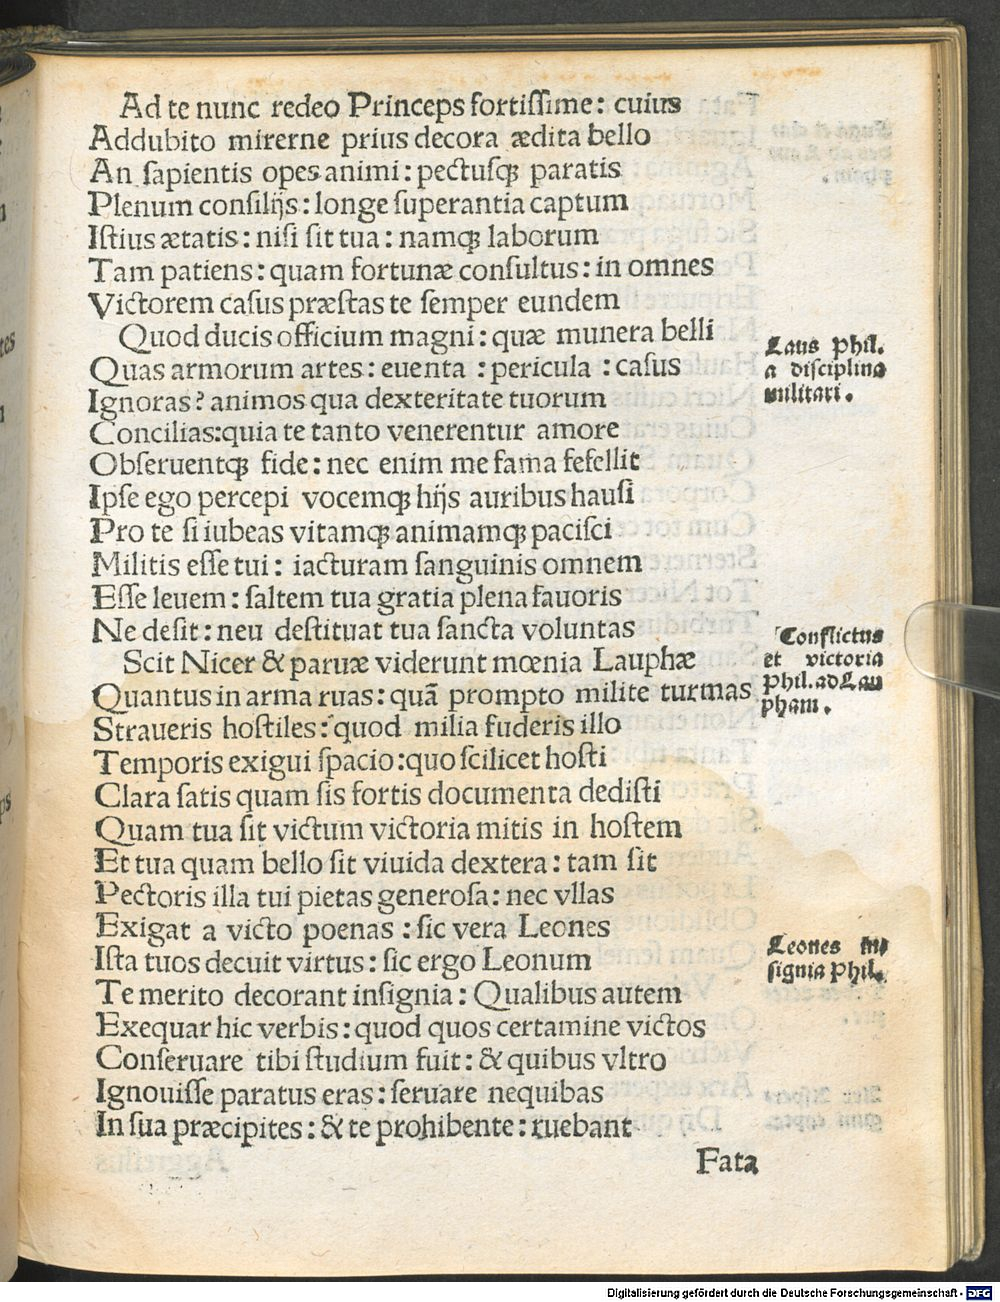 Ad te nunc redeo Princeps fortiſſime: cuius
Addubito mirerne prius decora ædita bello
An ſapientis opes animi: pectuſqꝫ paratis
Plenum conſilijs: longe ſuperantia captum
Iſtius ætatis: niſi ſit tua: namqꝫ laborum
Tam patiens: quam fortunæ conſultus: in omnes
Victorem caſus præſtas te ſemper eundem
Quod ducis officium magni: quæ munera belli
Quas armorum artes: euenta : pericula : caſus
Ignoras? animos qua dexteritate tuorum
Concilias:quia te tanto venerentur amore
Obſeruentqꝫ fide: nec enim me fama fefellit
Ipſe ego percepi vocemqꝫ hijs auribus hauſi
Pro te ſi iubeas vitamqꝫ animamqꝫ paciſci
Militis eſſe tui: iacturam ſanguinis omnem
Eſſe leuem: ſaltem tua gratia plena fauoris
Ne deſit: neu deſtituat tua ſancta voluntas
Scit Nicer & paruæ viderunt mœnia Lauphæ
Quantus in arma ruas: quā prompto milite turmas
Straueris hoſtiles: quod milia fuderis illo
Temporis exigui ſpacio:quo ſcilicet hoſti
Clara ſatis quam ſis fortis documenta dediſti
Quam tua ſit victum victoria mitis in hoſtem
Et tua quam bello ſit viuida dextera: tam ſit
Pectoris illa tui pietas generoſa: nec vllas
Exigat a victo poenas : ſic vera Leones
Iſta tuos decuit virtus: ſic ergo Leonum
Te merito decorant inſignia: Qualibus autem
Exequar hic verbis: quod quos certamine victos
Conſeruare tibi ſtudium fuit: & quibus vltro
Ignouiſſe paratus eras: ſeruare nequibas
In ſua præcipites: & te prohibente: ruebant
Fata
Laus Phil.
a diſciplina
militari.
Conflictus
et victoria
Phil. ad Lau
pham.
Leones in
ſignia Phil.
Digitalisierung gefördert durch die Deutsche Forschungsgemeinschaft - DFG